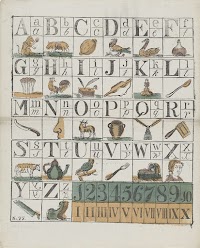 A a B b C c D d E e F f
G g H h I i J j K k L l
M m N n O o P p Q q R r
S s T t U u V v W w X x
Y y Z z 1 2 3 4 5 6 7 8 9 10
I II III IV V VI VII VIII IX X